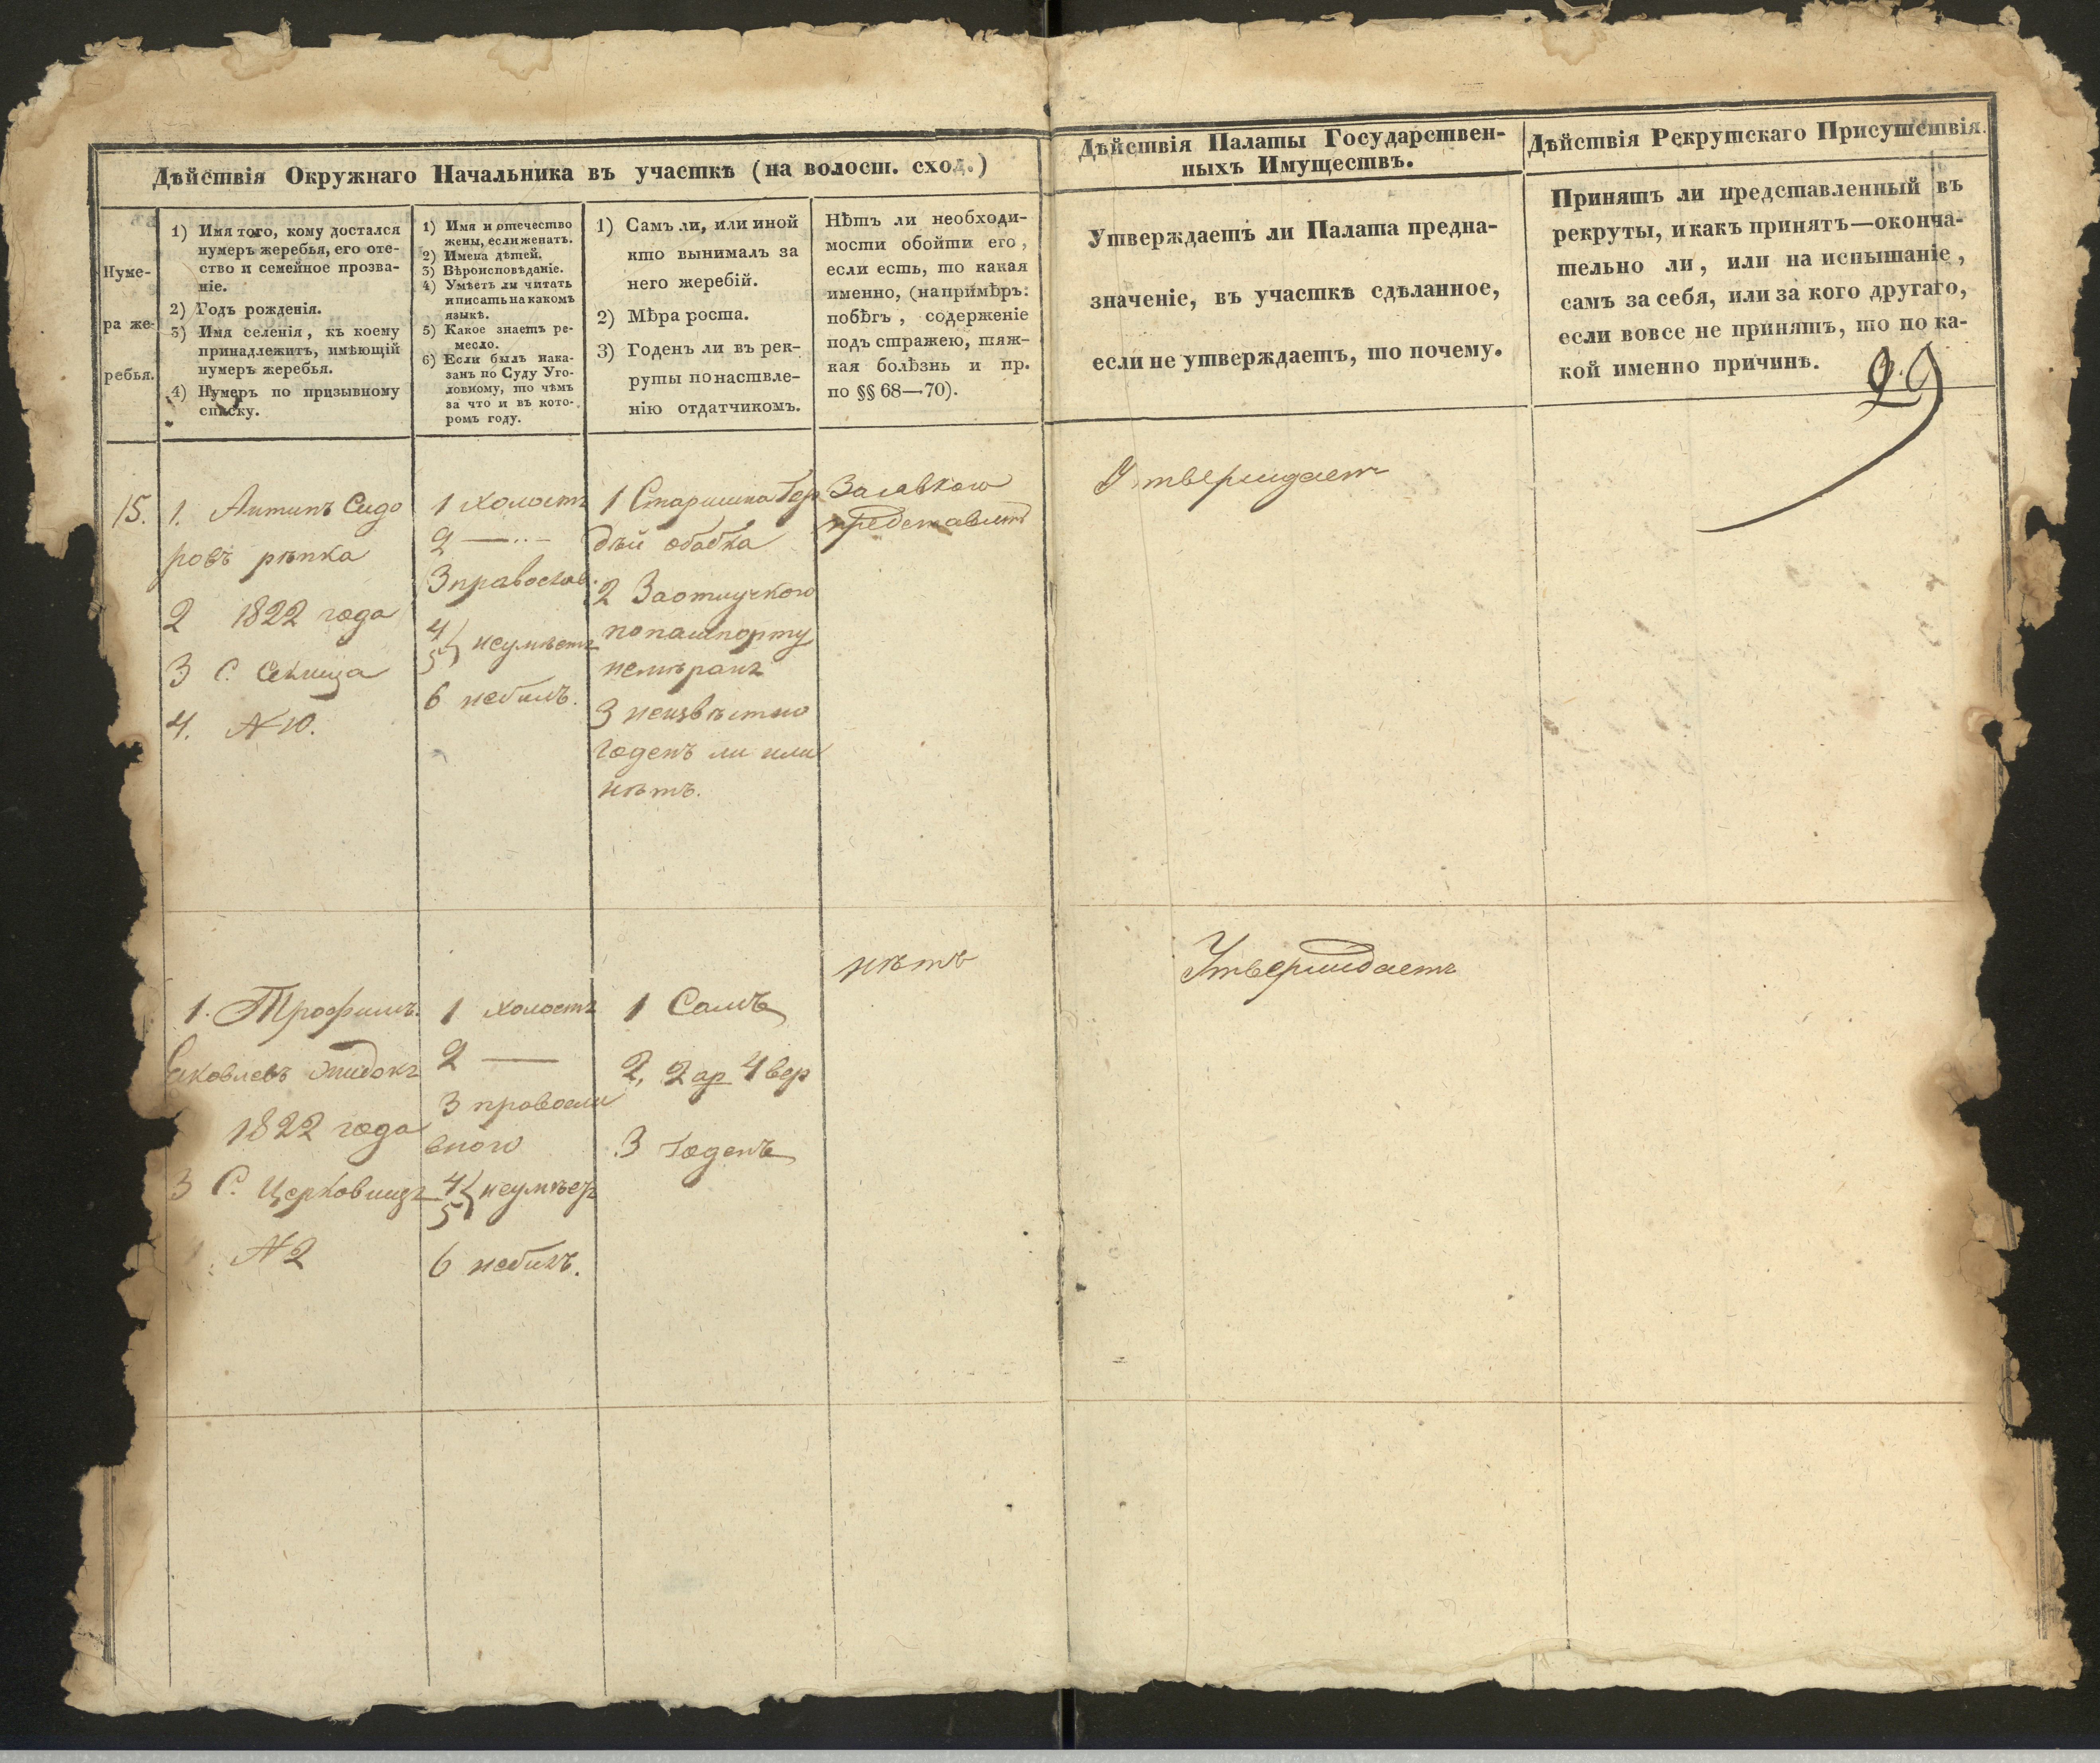 Дѣйствія Окружнаго Начальника въ участкѣ (на волост. сход.)
Дѣйствія Палаты Государствен-
ныхъ Имуществъ.
Дѣйствія Рекрутскаго Присутствія.
Нуме-
ра же-
ребья.
1) Имя того, кому достался
нумеръ жеребья, его оте-
ство и семейное прозва-
ніе.
2) Годъ рожденія.
3) Имя селенія, къ коему
принадлежитъ, имѣющій
нумеръ жеребья.
4) Нумеръ по призывному
списку.
1) Имя и отечество
жены, если женатъ.
2) Имена дѣтей.
3) Вѣроисповѣданіе.
4) Умѣетъ ли читать
и писать на какомъ
языкѣ.
5) Какое знаетъ ре-
месло.
6) Если былъ нака-
занъ по Суду Уго-
ловному, то чѣмъ
за что и въ кото-
ромъ году.
1) Самъ ли, или иной
кто вынималъ за
него жеребій.
2) Мѣра роста.
3) Годенъ ли въ рек-
руты по наставле-
нію отдатчикомъ.
Нѣтъ ли необходи-
мости обойти его,
если есть, то какая
именно, (напримѣръ:
побѣгъ, содержаніе
подъ стражею, тяж-
кая болѣзнь и пр.
по §§ 68—70).
Утверждаетъ ли Палата предна-
значеніе, въ участкѣ сдѣланное,
если не утверждаетъ, то почему.
Принятъ ли представленный въ
рекруты, и какъ принятъ—оконча-
тельно ли, или на испытаніе,
самъ за себя, или за кого другаго,
если вовсе не принятъ, то по ка-
кой именно причинѣ.
15.
1. Антипъ Сидо
ровъ рѣпка
2 1822 года
3 С. Секища
4. N 10.
1 холостъ
2 —··–
3 православ.
4
5 } неумѣетъ
6 небылъ.
1 Старшина Гор
дѣй обабка
2 Заотлучкою
попашпорту
немѣранъ
3 неизвѣстно
годенъ ли или
нѣтъ.
Заявкою
представлен
Утверждаетъ
1. Трофимъ
Яковлевъ
1822 года
3 С. Церковищъ
N 2
1 холостъ
2 —
3 правосла
вного
4
5 } неумѣет
6 небылъ.
1 Самъ
2, 2 ар 4 вер
3 Годенъ
нѣтъ
Утверждаетъ